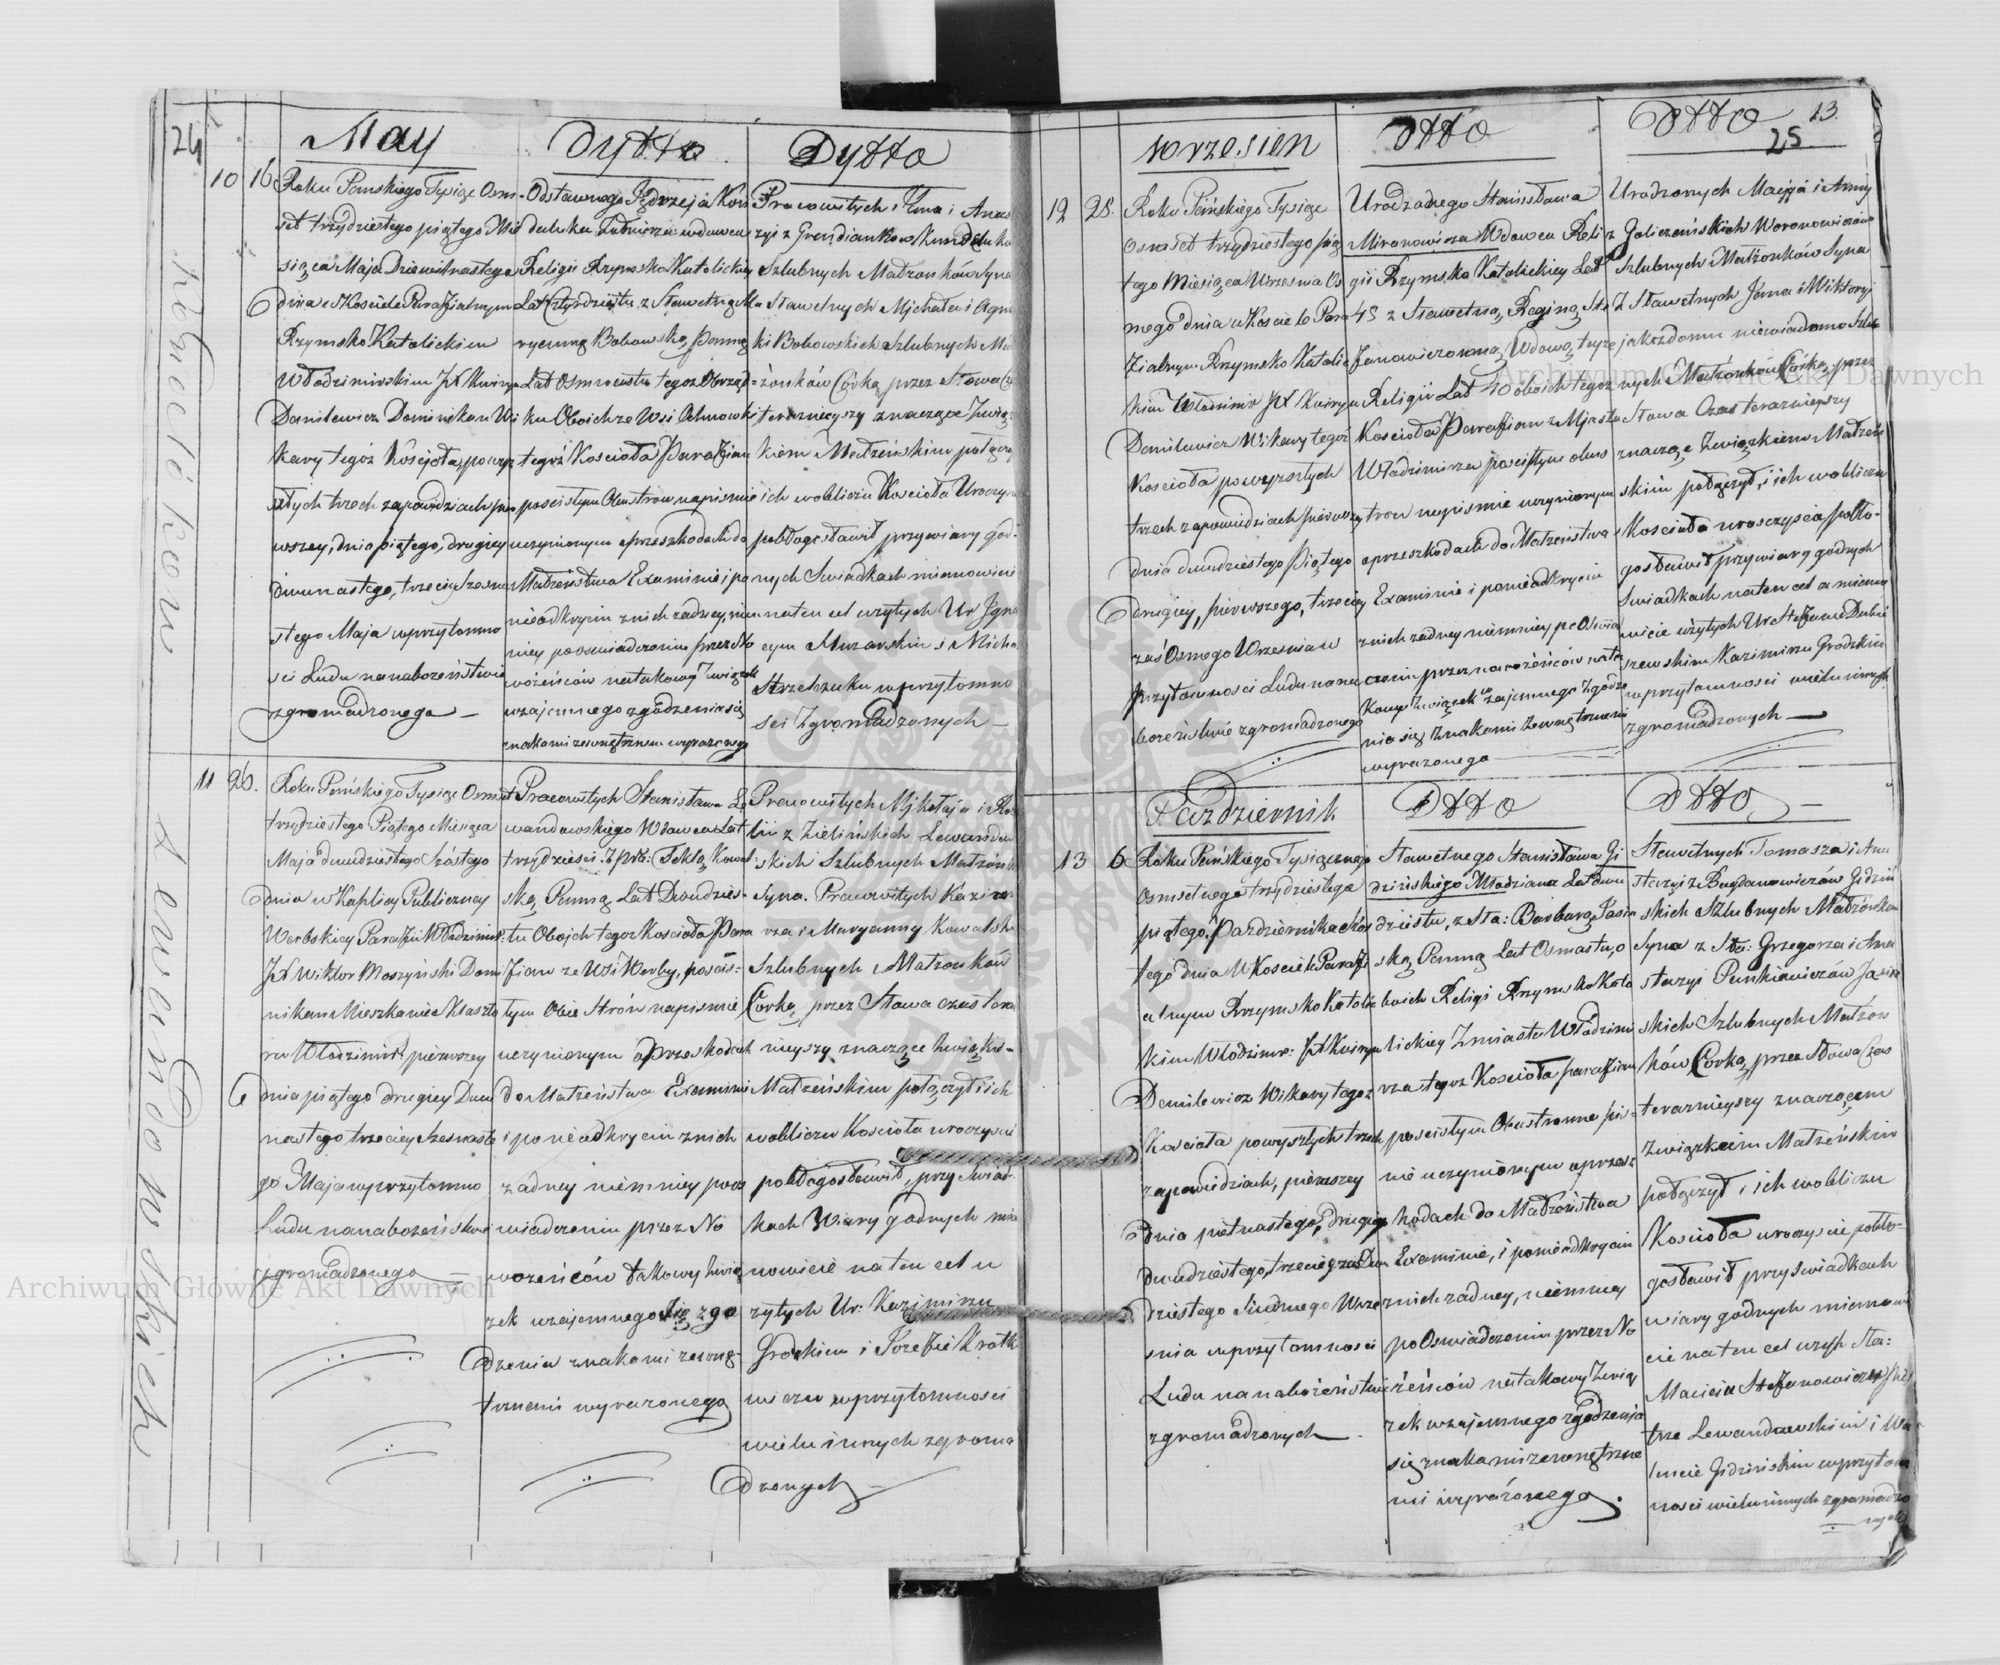 24
May
Dytto
Dytto
10
16
Roku Pańskiego Tysiąc Osm-
set trzydziestego piątego Mie
siąca Maja Dziewiętnastego
dnia w Kościele Parafialnym
Rzymsko Katolickim
Włodzimirskim JX Kwiryn
Danilewicz Dominikan Wi
kary tegóż Kościoła, po wyż
szłych trzech zapowiedziach pier
wszey, dnia piątego, drugiey
dwunastego, trzeciey szesna
stego Maja w przytomno
ści Ludu na nabożeństwie
zgromadzonego
Odstawnego Jędrzeja Kon
deluka Żołnierza wdowca
Religii Rzymsko Katolickiey
Lat Czterdziestu z Sławetną Ma
ryanną Bobowską Panną
Lat Osmnastu tegoż Obrząd-
ku Oboich ze Wsi
tegoż Kościoła Parafian
po ścisłym Obustron na piśmie
uczynionym o przeszkodach do
Małżeństwa Examinie i po
nieodkryciu z nich żadney, niem
niey po oświadczeniu przez No
wożeńców na takowy Związek
wzajemnego zgodzenia się
znakami zewnętrznemi wyrażonego
Pracowitych Jana i Anas
tazyi z
Szlubnych Małżonków Syna
Sławetnych Michała i Agni
ki Bobowskich Szlubnych Mał
żonków Córką przez Słowa Cz
teraznieyszy znaczące Związ
kiem Małżeńskim połączył
ich w obliczu Kościoła Uroczyście
pobłogosławił przy wiary god-
nych Swiadkach mianowicie
na ten cel użytych Ur Igna
cym Murawskim i Micha
Strzelczuku w przytomno
ści Zgromadzonych
11
26.
Roku Pańskiego Tysiąc Osmset
trzydziestego Piątego Miesiąca
Maja dwudziestego Szóstego
dnia w Kaplicy Publiczney
Werbskiey Parafii Włodzimir:
JX Wiktor Moszyński Domi
nikan Mieszkaniec Klaszto
ru Włodzimir: pierwszey
dnia piątego drugiey Dwu
nastego trzeciey Szesnaste
go Maja w przytomno
Ludu na nabożeństwie
zgromadzonego
Pracowitych Stanisława Le
wandowskiego Wdowca Lat
trzydzieści. z pra: Teklą Kowal-
ską Panną Lat Dwudzies-
tu Obojch tegoż Kościoła Para
fian ze Wsi Werby, po ścis-
łym Obie Strón na piśmie
uczynionym o Przeszkodach
do Małżeństwa Examinie
i po nieodkryciu z nich
żadney niemniey po oś
wiadczeniu przez No
wożeńców takowy Zwią
zek wzajemnego się zgo
dzenia znakami zewnę-
trznemi wyrażonego
Pracowitych Mikołaja i Ro
lii z Zielińskich Lewandow
skich Szlubnych Małżonków
Syna. Pracowitych Kazimi
rza i Maryanny Kowalskich
Szlubnych Małżonków
Córką, przez Słowa czas tera
znieyszy znaczące Związkie-
Małżeńskim połączył i ich
w obliczu Kościoła uroczyście
pobłogosławił, przy Świad-
kach Wiary godnych mia
nowicie na ten cel u
żytych Ur: Kazimirzu
Grockim i Józefie Krótk
wiczu w przytomności
wielu innych zgroma
dzonych
13.
25.
Wrzesień
Dtto
Dtto
12
28.
Roku Pańskiego Tysiąc
Osmset trzydziestego pią
tego Miesiąca Września Os
mego dnia w Koscie le Para
fialnym Rzymsko Katolic
kim Włodzimir JX Kwiryn
Danilewicz Wikary tegoż
Kościoła po wyszłych
trzech zapowiedziach pierwszey
dnia dwudziestego Piątego
drugiey, pierwszego, trzeciey
zaś Osmego Września w
przytomności Ludu na na
bożeństwie zgromadzonego
Urodzonego Stanisława
Mironowicza Wdowca Reli
gii Rzymsko Katolickiey Lat
45 z Sławetną Reginą Ste
fanowiczowną Wdową, tejże
Religii Lat 40 oboich tegoż
Kościoła Parafian z Mjasta
Włodzimirza po ścisłym obus
tron na piśmie uczynionym
o przeszkodach do Małżeństwa
Examinie i po nieodkryciu
z nich żadney niemniey po Oświa
czeniu przez nowożeńców na ta
kowy Związek wzajemnego Zgodze
nia się Znakami Zewnętrznemi
wyrażonego
Urodzonych Macieja i Anny
z Galiczeńskich Woronowiczów
Szlubnych Małżonków Syna
Z Sławetnych Jana i Wiktoryi
jak z domu niewiadomo Szlub
nych Małżonków Córką, przez
Słowa Czas teraznieyszy
znaczące Związkiem Małżeń
skim połączył, i ich w obliczu
Kościoła uroczyście pobło-
gosławił przy wiary godnych
Swiadkach na ten cel a miano
wicie użytych Ur Steffanie Dubi
szewskim Kazimirzu Grodzkim
w przytomności wielu innych
zgromadzonych
Październik
Dtto
Dtto
13
6
Roku Pańskiego Tysiącznego
Osmsetnego trzydziestego
piątego Października Szós
tego dnia W Kościele Parafi
alnym Rzymsko Katolic
kim Włodzimir: JX Kwiryn
Danilewicz Wikary tegoż
Kościoła po wyszłych trzech
zapowiedziach, pierwszey
dnia piętnastego, drugiey
dwudziestego, trzeciey zaś Dwu
dziestego Siudmego Wrze
śnia w przytomności
Ludu na nabożeństwie
zgromadzonych
Sławetnego Stanisława Gi
dzińskiego Młodziana Lat dwu
dziestu, z Sła: Barbarą Jasin
ską Panną Lat Osmastu, o
boich Religi Rzymsko Kato
lickiey Z miasta Włodzimi
rza tegoż Kościoła parafian
po ścisłym Obustronne piś-
mie uczynionym o przesz
kodach do Małżeństwa
Examinie, i po nieodkryciu
z nich żadney, niemniey
po Oswiadczeniu przez No
wożeńców na takowy Zwią
zek wzajemnego zgodzenia
się znakami zewnętrzne
mi wyrażonego.
Sławetnych Tomasza i Ana
stazyi z Bogdanowiczów Gidziń
skich Szlubnych Małżonków
Syna z Sła: Grzegorza i Ana
stazyi Punkiewiczów Jasiń
skich Szlubnych Małżon
ków Córką, przez Słowa Czas
teraznieyszy znaczącem
Związkiem Małżeńskim
połączył i ich w obliczu
Kościoła uroczyście pobło-
gosławił przy świadkach
wiary godnych mianowi
cie na ten cel użyt Sła:
Macieju Steffanowiczu Pio
trze Lewandowskim i Wa
Gidzińskim w przytom
ności wielu innych zgromadzo
nych
Lewandowskich
Archiwum Główne Akt Dawnych
Archiwum Główne Akt Dawnych